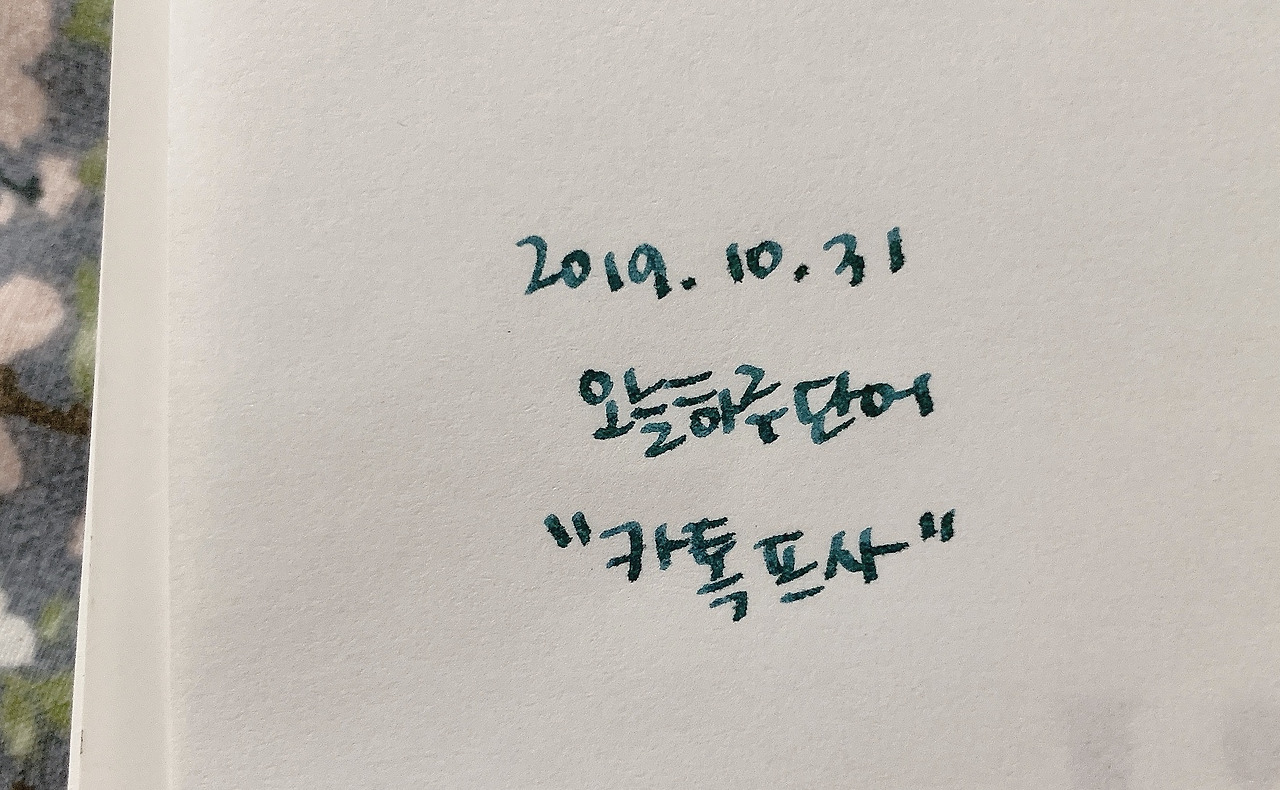 2019. 10. 31
오늘하루단어
"카톡프사"